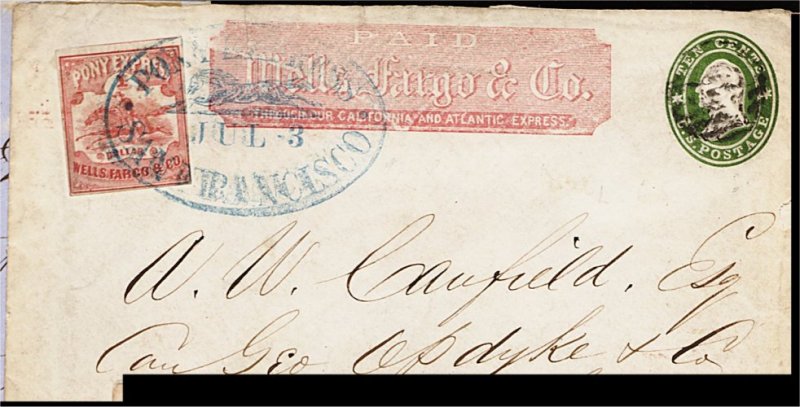 PAID
Wells, Fargo & Co.
THROUGH OUR CALIFORNIA AND ATLANTIC EXPRESS.
PONY EXPRESS
DOLLAR
WELLS, FARGO & CO
PONY EXPRESS
JUL 3
SAN FRANCISCO
TEN CENTS
U.S. POSTAGE
A. W. Canfield, Esq
Care Geo Opdyke & Co